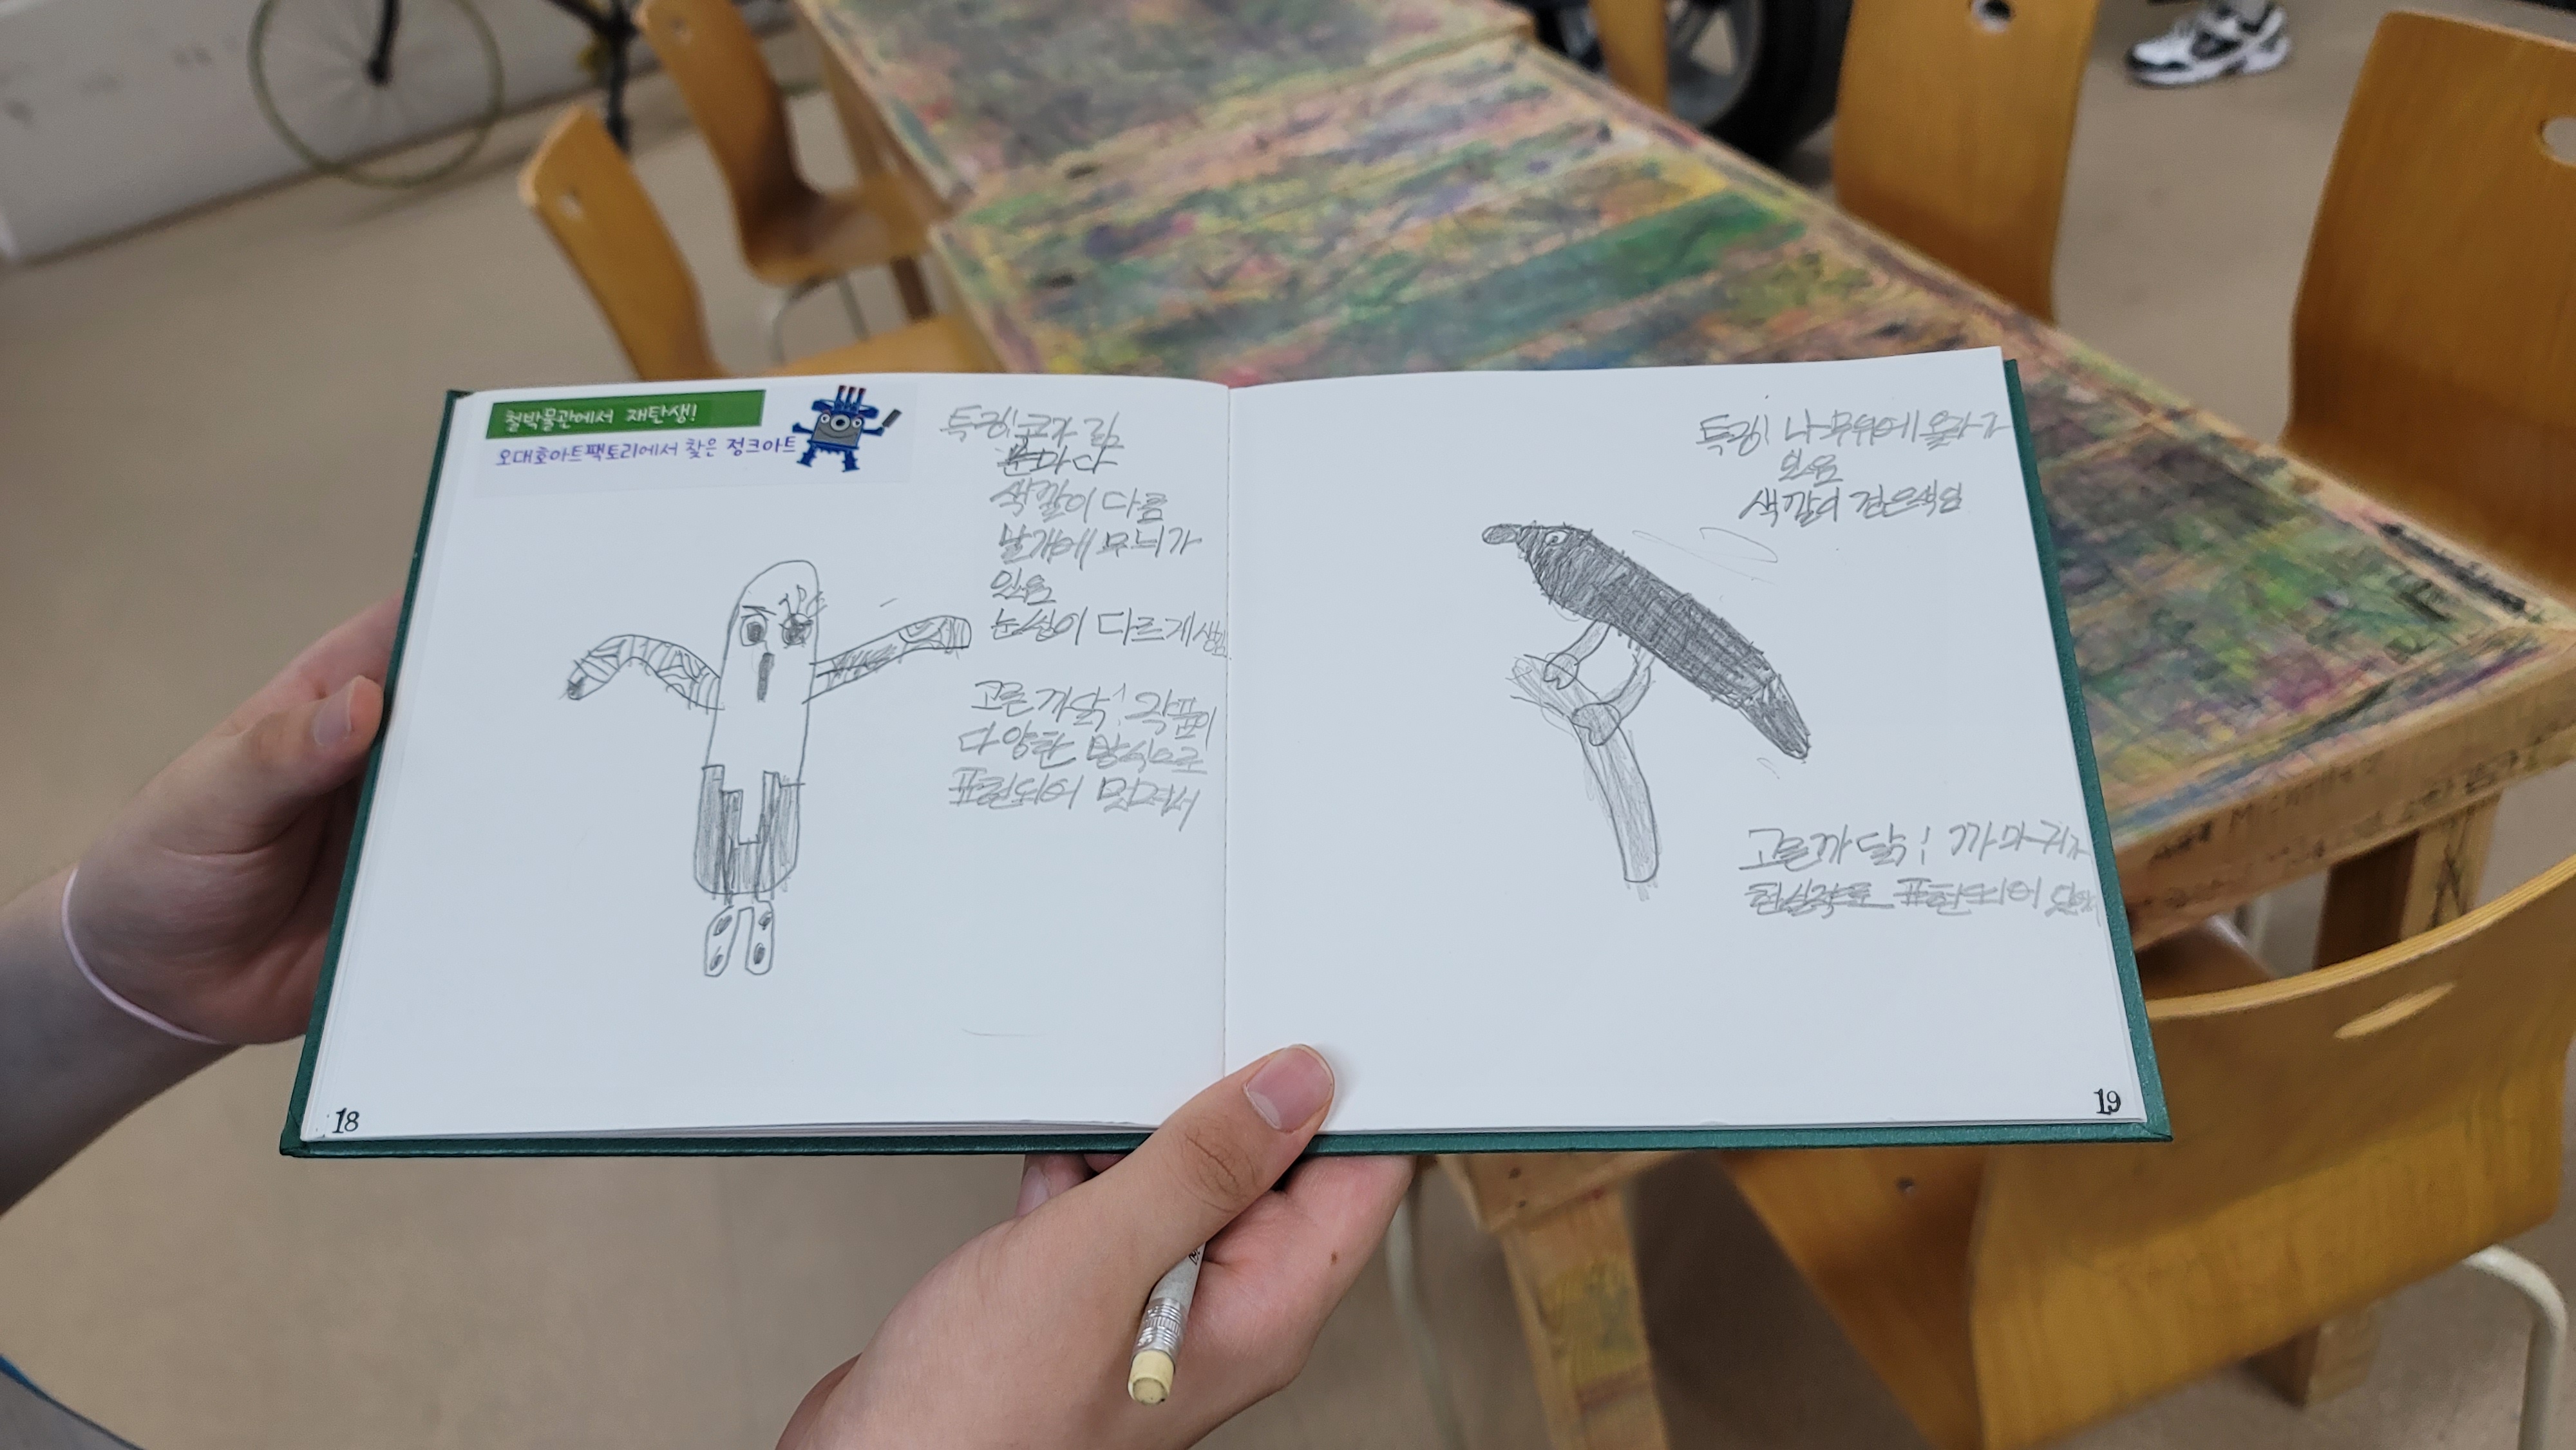 철박물관에서 재탄생!
오대호아트팩토리에서 찾은 정크아트
특징! 코가 김
눈마다
색깔이 다름
날개에 무늬가
있음
눈썹이 다르게 생김
고른 까닭! 작품이
다양한 방식으로
표현되어 멋져서
18
특징! 나무위에 올라가
있음
색깔이 검은색임
고른까닭! 까마귀가
현실적으로 표현되어 있어서
19